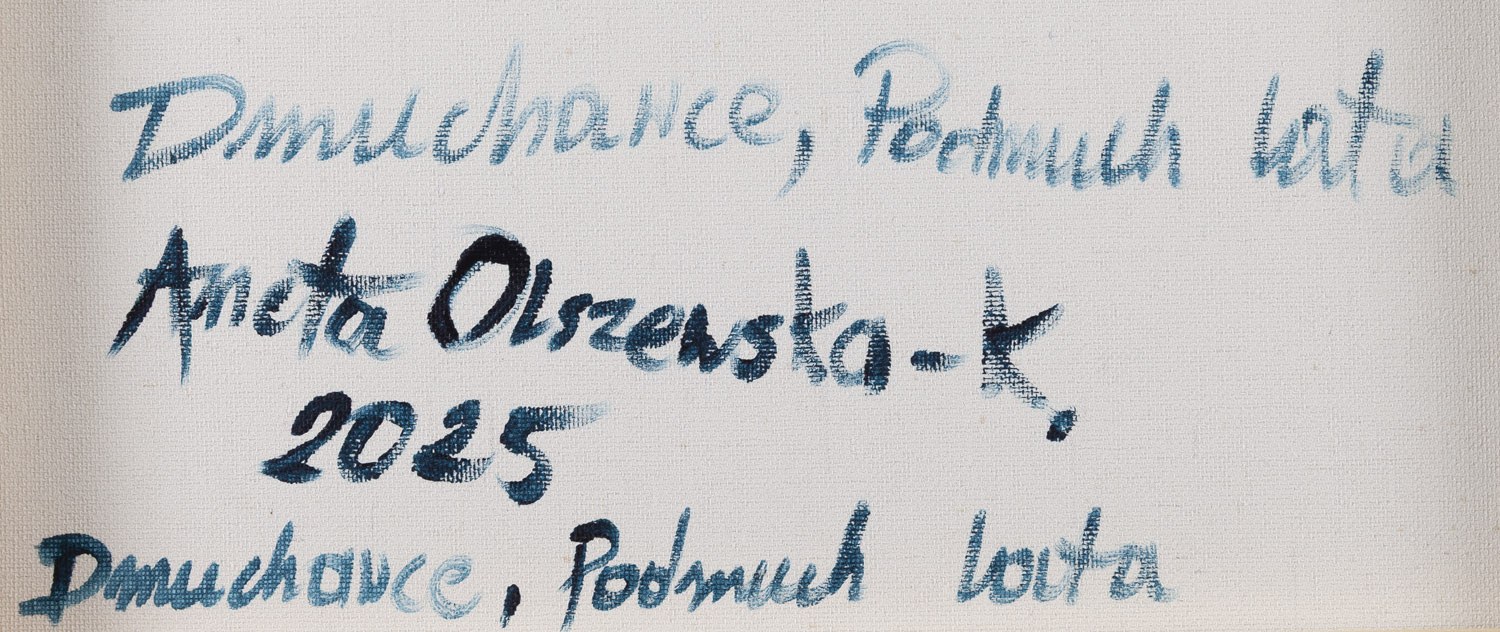 Dmuchawce, Podmuch lata
Aneta Olszewska-K.
2025
Dmuchawce, Podmuch lata